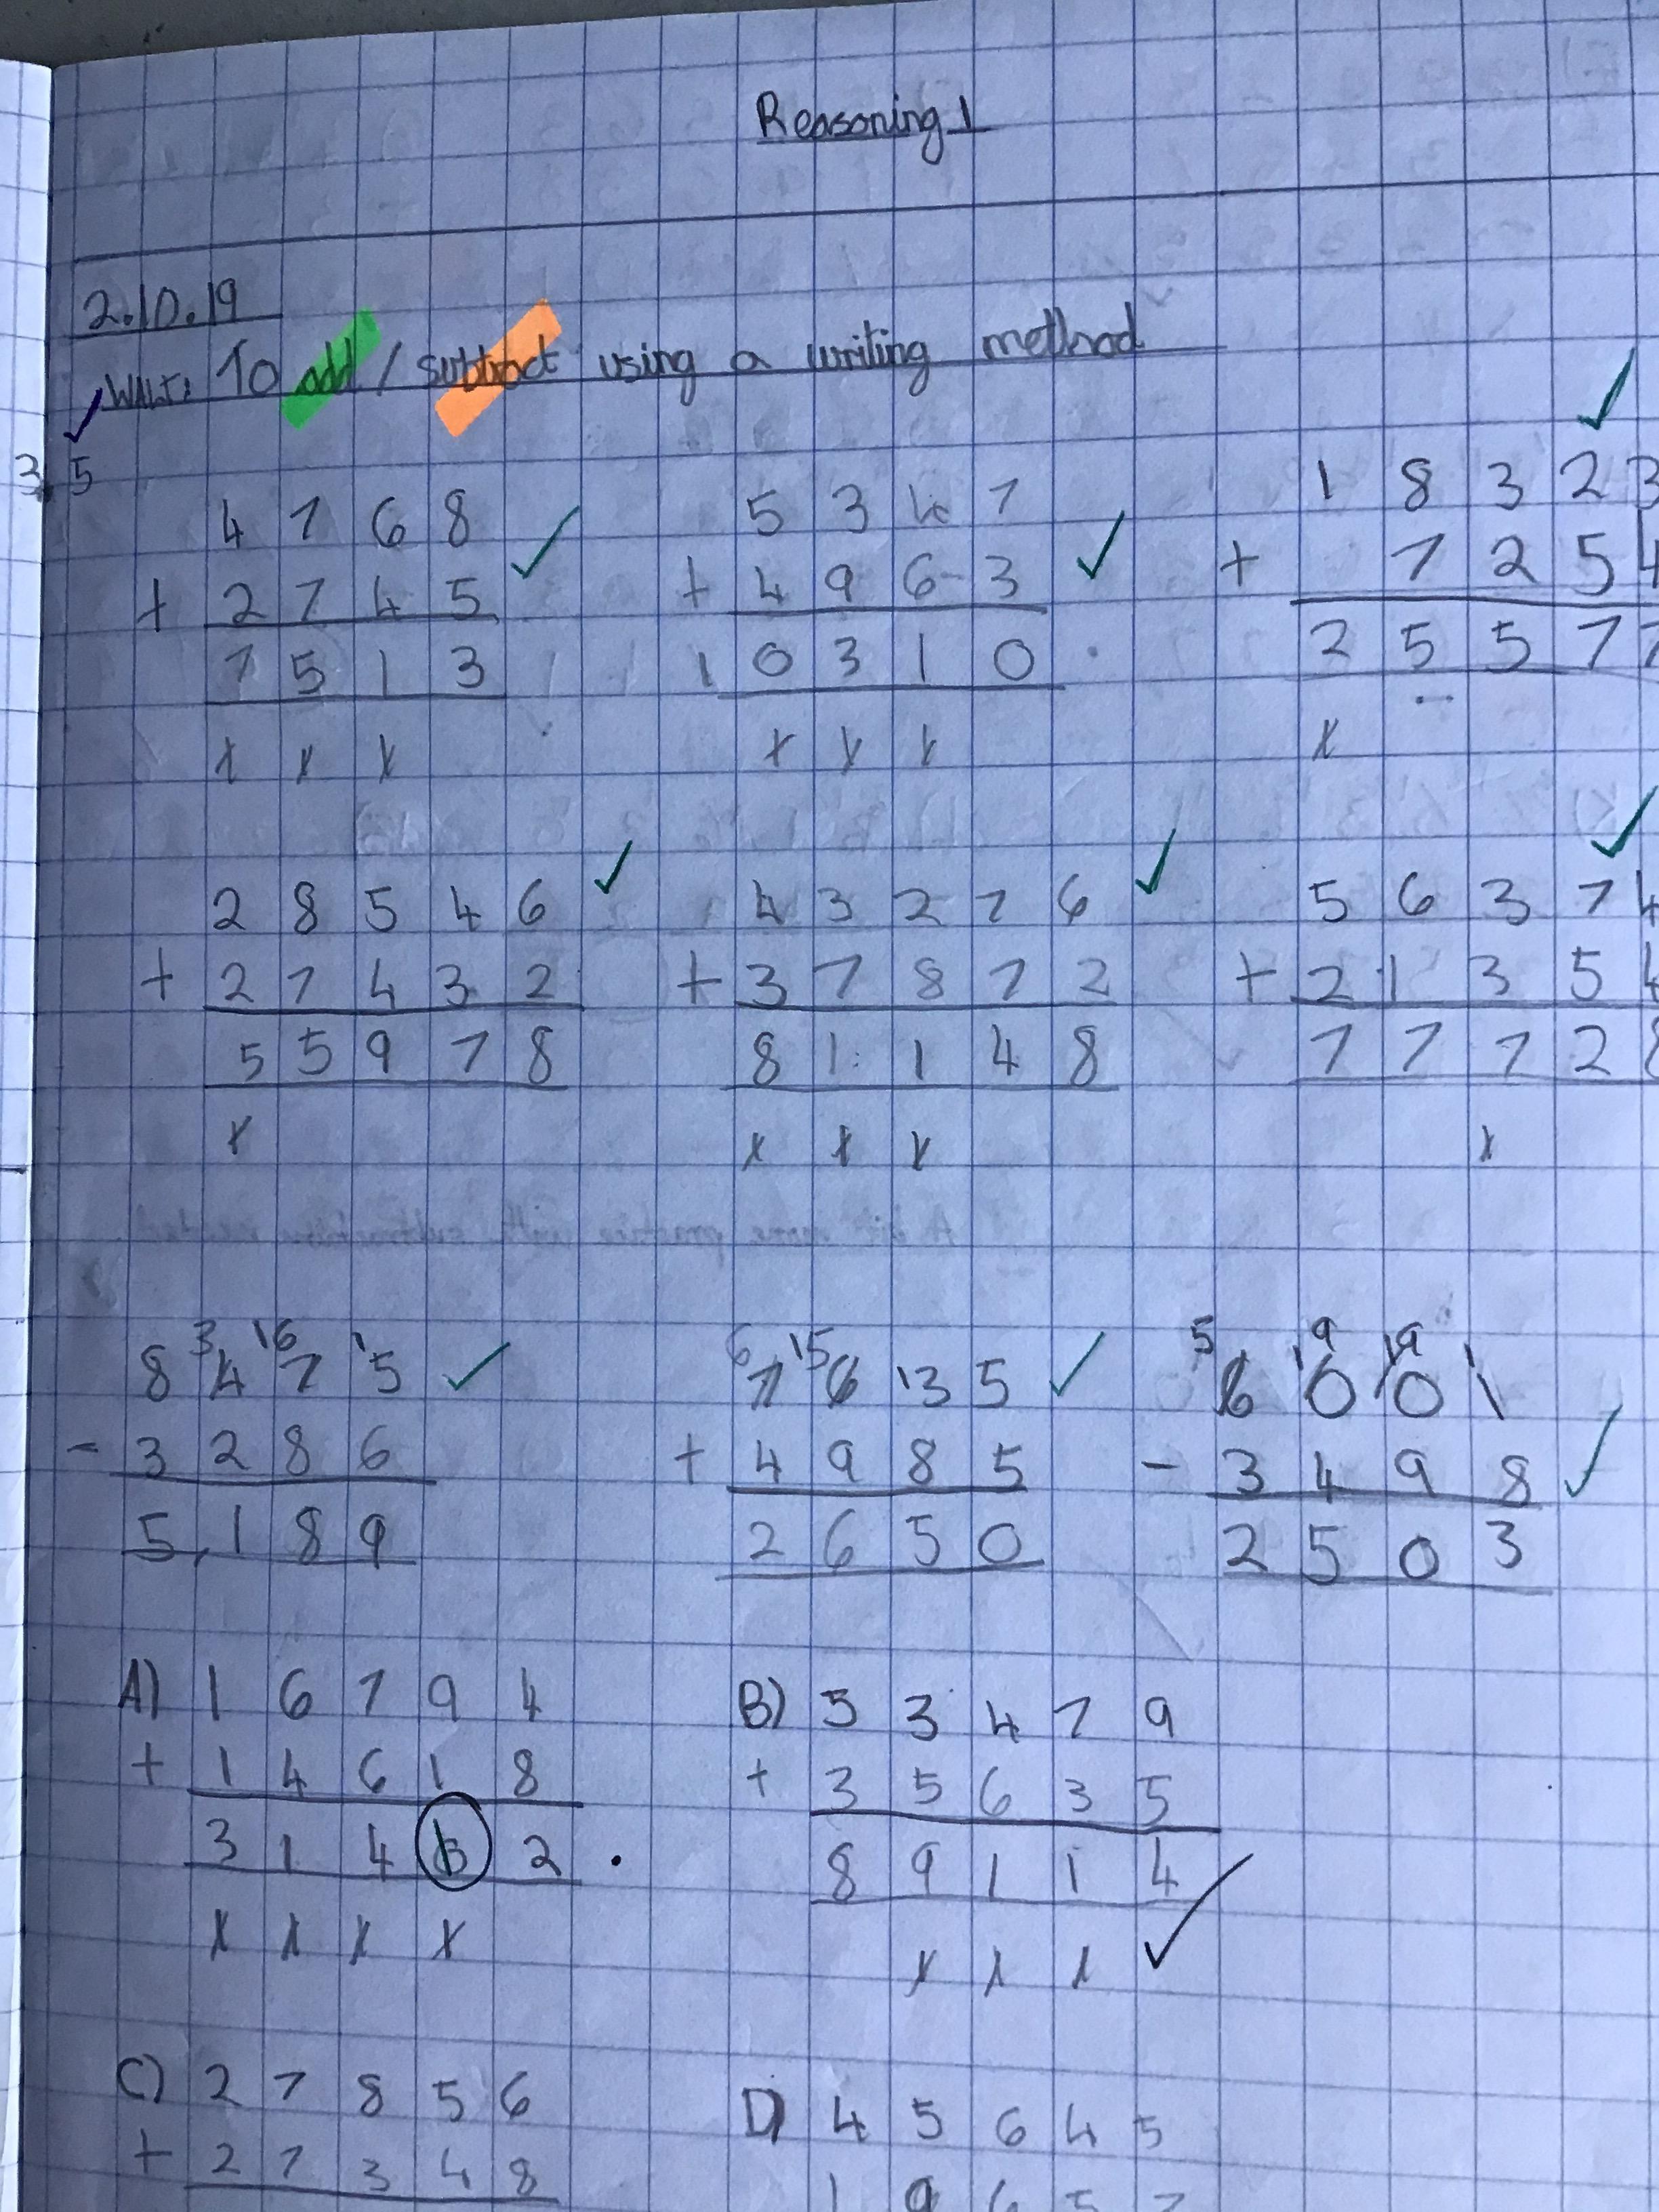 Reasoning 1
2.10.19
WALT: To add / subtract using a writing method
3.5
4 7 6 8
+ 2 7 4 5
7 5 1 3
5 3 4 7
+ 4 9 6 3
1 0 3 1 0
1 8 3 2 3
+ 7 2 5 4
2 5 5 7 7
2 8 5 4 6
+ 2 7 4 3 2
5 5 9 7 8
4 3 2 7 6
+ 3 7 8 7 2
8 1 1 4 8
5 6 3 7 4
+ 2 1 3 5 4
7 7 7 2 8
3 16 1
8 4 7 5
- 3 2 8 6
5,1 8 9
6 15 1
7 6 3 5
+ 4 9 8 5
2 6 5 0
5 19 19 1
6 0 0 1
- 3 4 9 8
2 5 0 3
A) 1 6 7 9 4
+ 1 4 6 1 8
3 1 4 2
B) 5 3 4 7 9
+ 3 5 6 3 5
8 9 1 1 4
C) 2 7 8 5 6
+ 2 7 3 4 8
D) 4 5 6 4 5
1 9 6 5